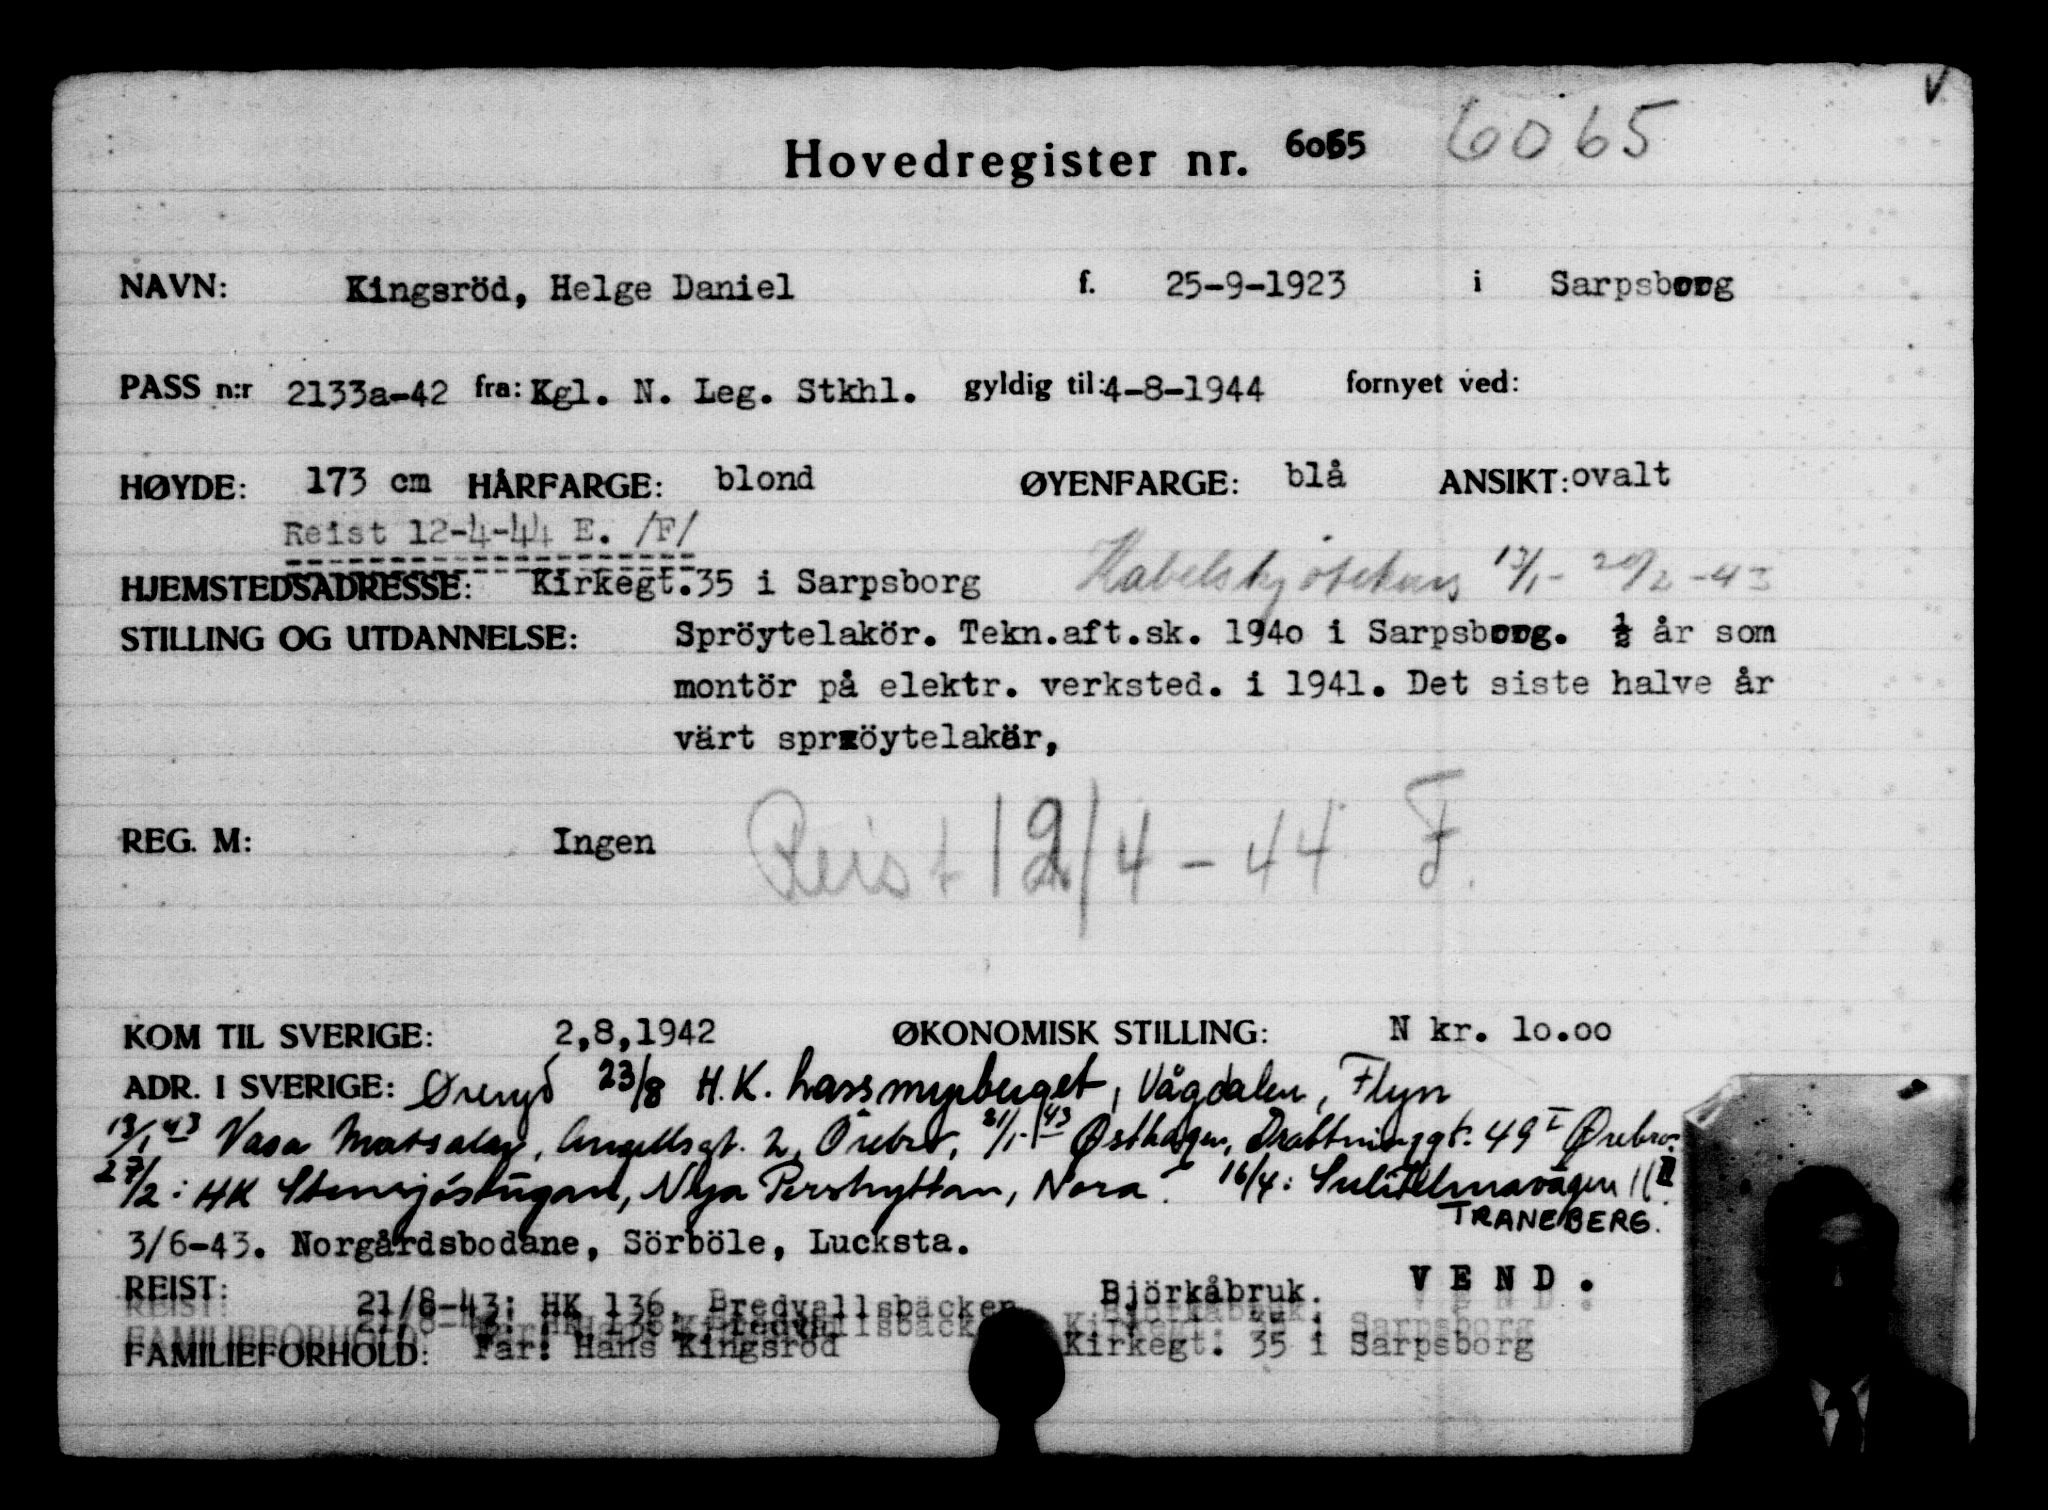 Hovedregister nr. 6065 6065
NAVN: Kingsröd, Helge Daniel f. 25-9-1923 i Sarpsborg
PASS n:r 2133a-42 fra: Kgl. N. Leg. Stkhl. gyldig til: 4-8-1944 fornyet ved:
HØYDE: 173 cm HÅRFARGE: blond ØYENFARGE: blå ANSIKT: ovalt
Reist 12-4-44 E. /F/
HJEMSTEDSADRESSE: Kirkegt.35 i Sarpsborg Kabelskjøtekurs 13/1- 20/2 -43
STILLING OG UTDANNELSE: Spröytelakör. Tekn.aft.sk. 1940 i Sarpsborg. ½ år som
montör på elektr. verksted. i 1941. Det siste halve år
värt spröytelakör,
REG. M: Ingen Reist 12/4-44 F.
KOM TIL SVERIGE: 2,8,1942 ØKONOMISK STILLING: N kr. 10.00
ADR. I SVERIGE: Øreryd 23/8 H.K. Lassmyrberget, Vågdalen, Flyn
13/1 43 Vasa Matsalar, Angellsgt. 2, Örebro, 21/1-43 Østhagen, Drottninggt. 49 I Ørebro.
27/2: HK Stensjöstugan, Nya Pershyttan, Nora. 16/4: Sulitelmavägen 11 II
TRANEBERG.
3/6-43. Norgårdsbodane, Sörböle, Lucksta.
REIST: 21/8-43: HK 136, Bredvallsbäcken Björkåbruk. VEND.
FAMILIEFORHOLD: Far: Hans Kingsröd Kirkegt. 35 i Sarpsborg